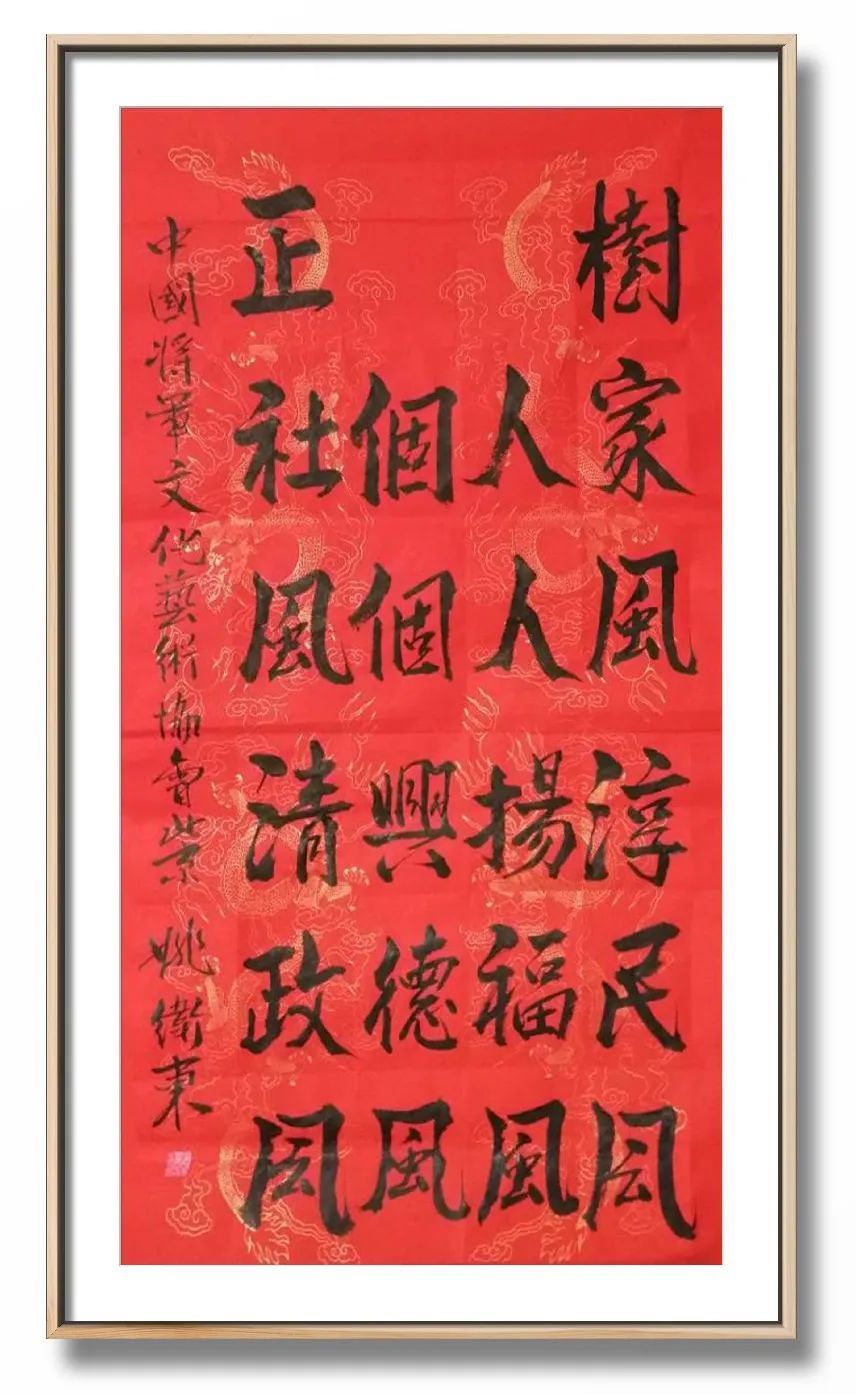 樹家風淳民风
人人揚福風
個個興德風
正社風清政风
中國將軍文化藝術協會
姚衛東